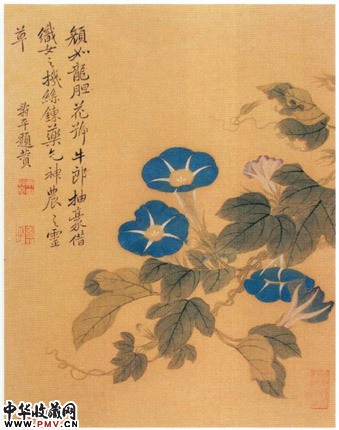 顏如龍胆花號牛郎抽毫借
織女之機絲鍊藥乞神農之靈
草
壽平題贊
中华收藏网
www.PMV.CN